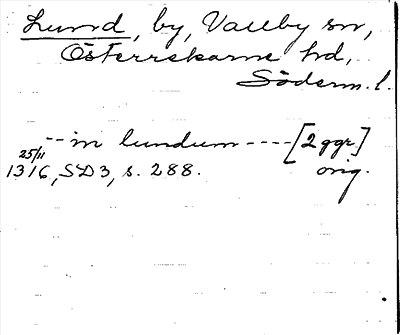 Lund, by, Vallby sn,
Österrekarne hd,
Söderm. l.
-- in lundum ---- [2 ggr]
25/11
1316, SD3, s. 288. orig.